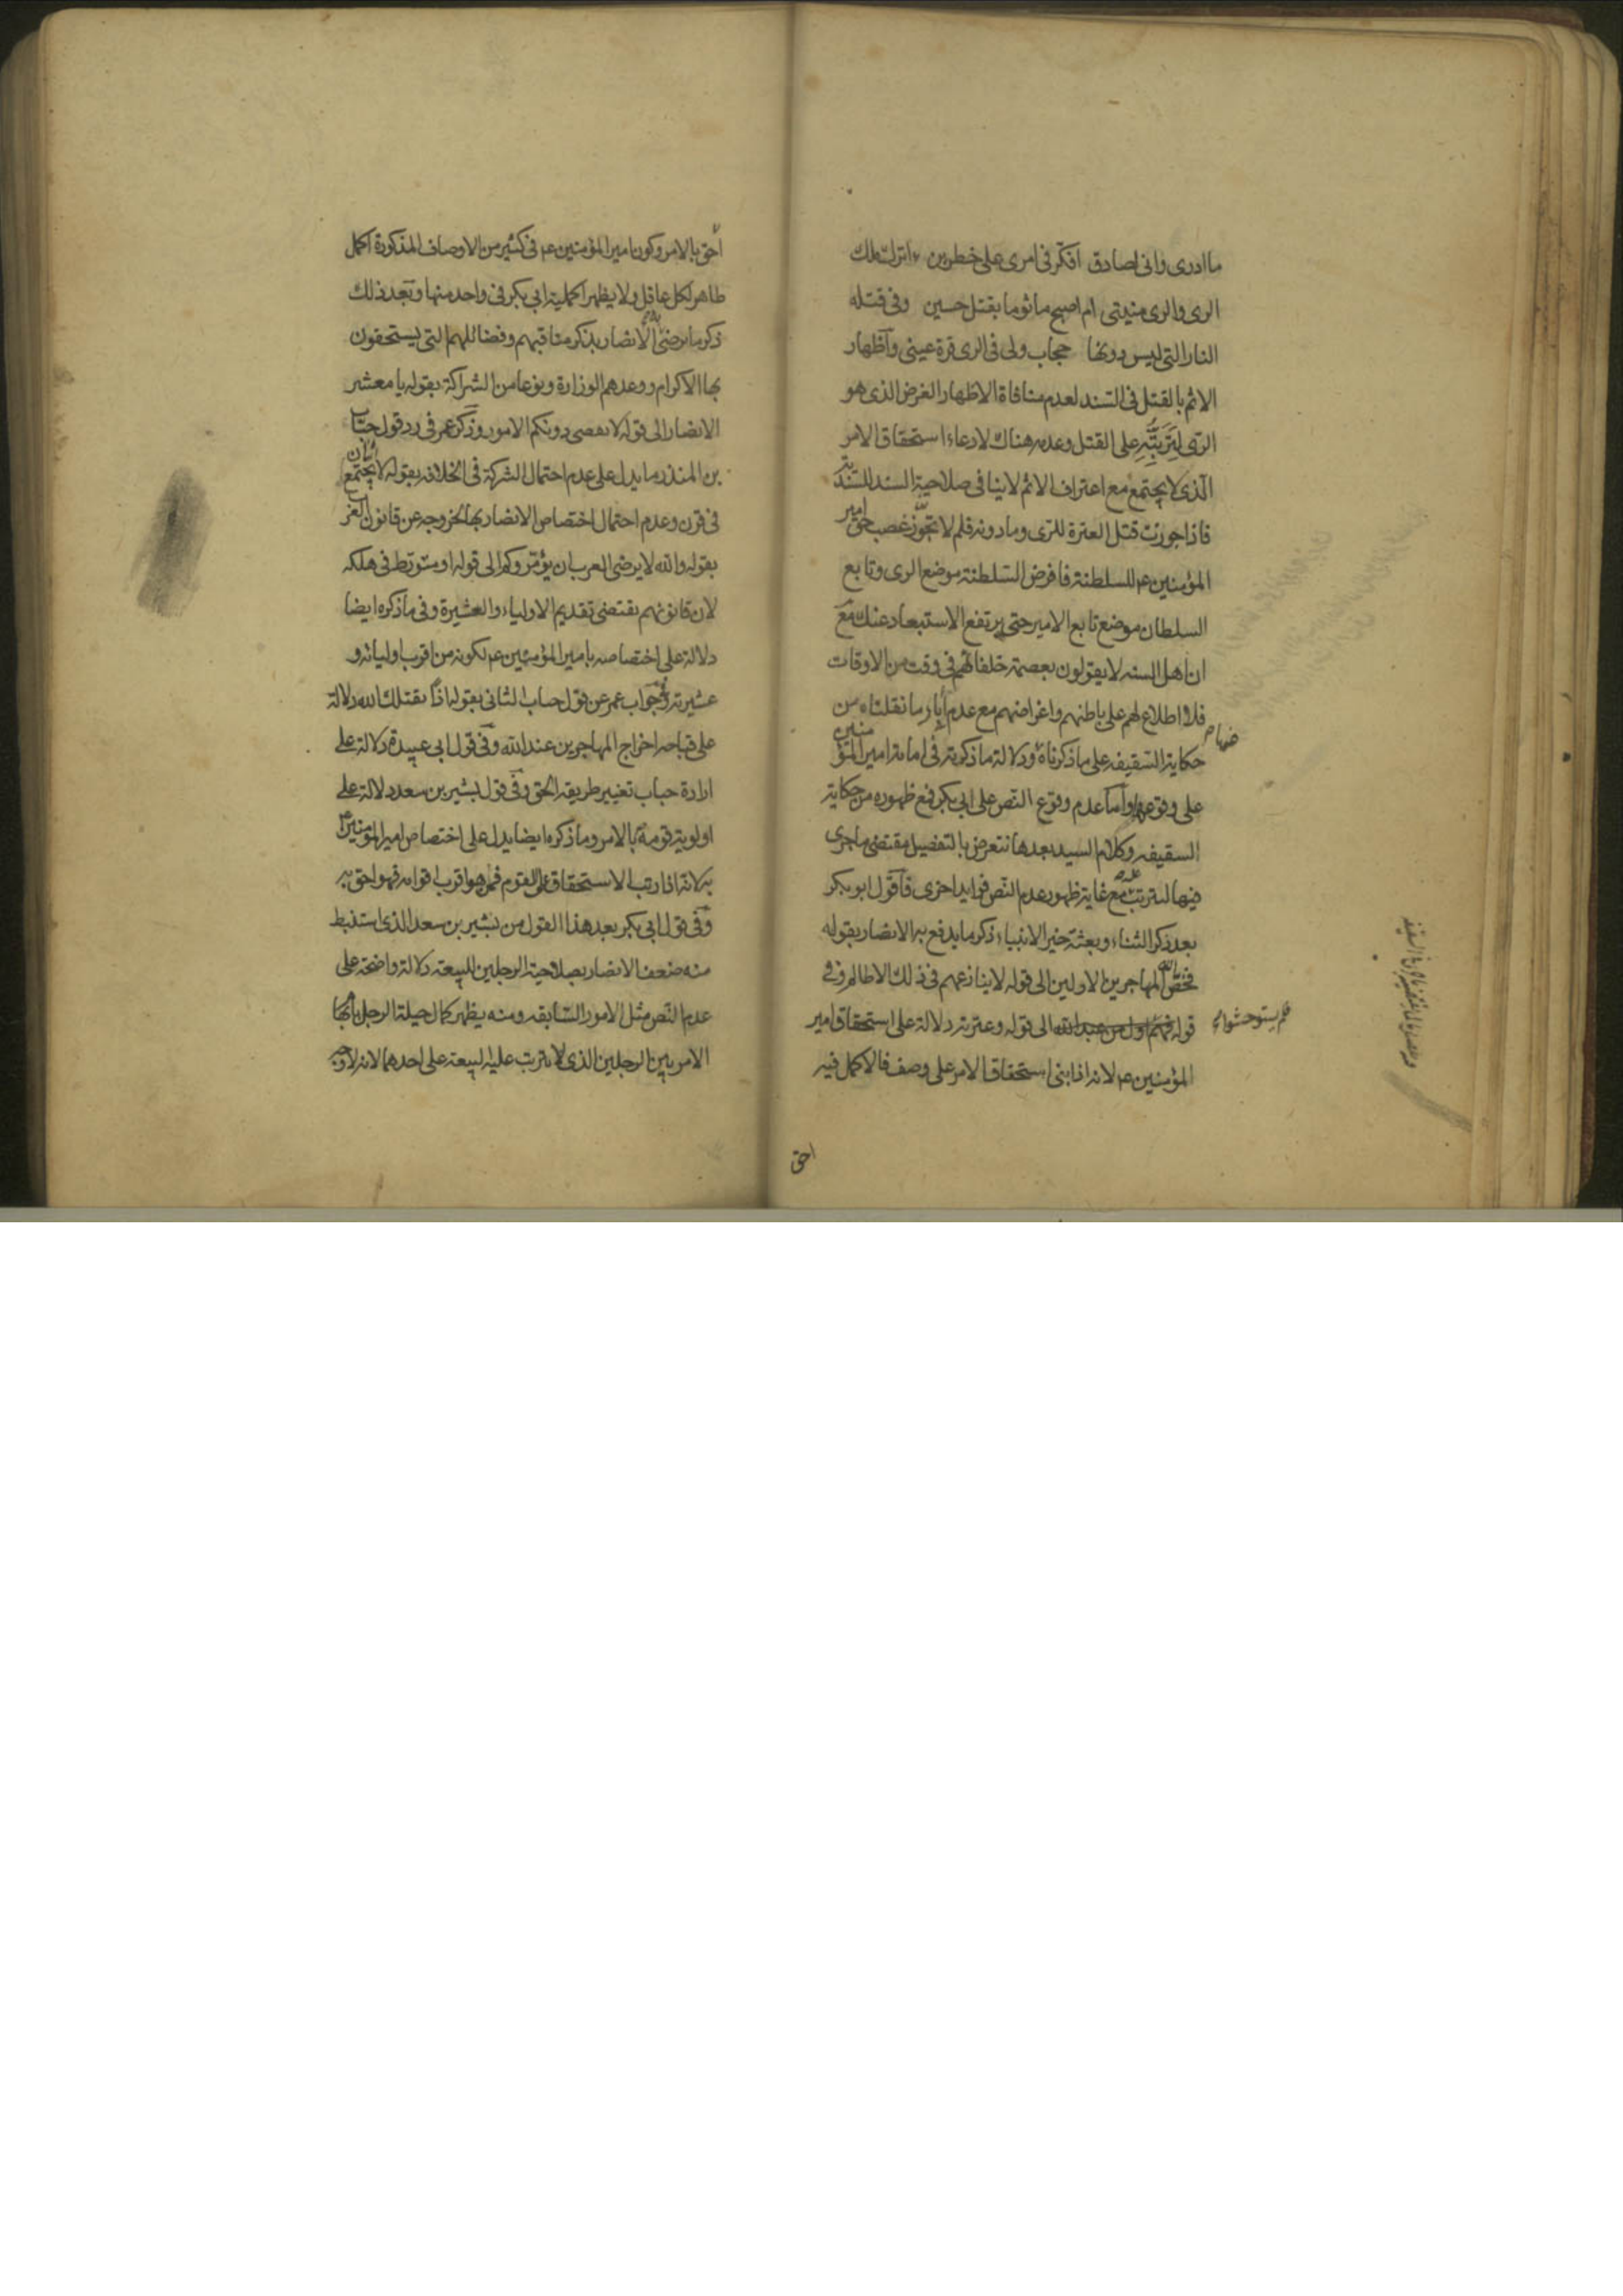 ما ادرى وانى لصادق افكر فى امرى على خطرين ءاترك ملك
الرى والرى منيتى ام اصبح ماثوما بقتل حسين وفى قتله
النار التى ليس دونها حجاب ولى فى الرى قرة عينى واظهار
الاثم بالقتل فى السند لعدم منافاة الاظهار الغرض الذى هو
الرى لترتبه على القتل وعدمه هناك لادعاء استحقاق الامر
الذى لا يجتمع مع اعتراف الاثم لا ينافى صلاحية السند للسندية
فاذا جوزت قتل العترة للرى وما دونه فلم لا تجوز غصب حق امير
المؤمنين ع للسلطنة فافرض السلطنة موضع الرى وتابع
السلطان موضع تابع الامير حتى يرتفع الاستبعاد عنك مع
ان اهل السنه لا يقولون بعصمة خلفائهم فى وقت من الاوقات
فلا اطلاع لهم على باطنهم واغراضهم مع عدم ما نقلناه من
حكاية السقيفه على ما ذكرناه ودلالة ما ذكرته فى امامة امير المؤمنين
على وقوعها واما عدم وقوع النص على ابى بكر فمع ظهوره من حكاية
السقيفه وكلام السيد بعدها نتعرض بالتفصيل مقتضى ما جرى
فيها لترتب مع غاية ظهور عدم النص فوايد اخرى فاقول ابو بكر
بعد ذكر الثناء وبعثة خير الانبياء ذكر ما يدفع به الانصار بقوله
فخص الله المهاجرين الاولين الى قوله لا ينازعهم فى ذلك الا ظالم وفى
قوله فهم اول من عبد الله الى قوله وعترته دلالة على استحقاق امير
المؤمنين ع لانه اذا بنى استحقاق الامر على وصف فالاكمل فيه
احق
فلم يستوحشوا
احق بالامر وكون امير المؤمنين ع فى كثير من الاوصاف المذكورة اكمل
ظاهر لكل عاقل ولا يظهر اكملية ابى بكر فى واحد منها وبعد ذلك
ذكر ما يرضى به الانصار بذكر مناقبهم وفضائلهم التى يستحقون
بها الاكرام ووعدهم الوزارة ونوعا من الشراكة بقوله يا معشر
الانصار الى قوله لا نقضى دونكم الامور وذكر عمر فى رد قول حباب
بن المنذر ما يدل على عدم احتمال الشركة فى الخلافه بقوله لا يجتمع اثنان
فى قرن وعدم احتمال اختصاص الانصار بها لخروجه عن قانون العرب
بقوله والله لا يرضى العرب ان يؤمروكم الى قوله او متورط فى هلكه
لان قانونهم يقتضى تقديم الاولياء والعشيرة وفى ما ذكره ايضا
دلالة على اختصاصه بامير المؤمنين ع لكونه من اقرب اوليائه و
عشيرته وفى جواب عمر عن قول حباب الثانى بقوله اذا يقتلك الله دلالة
على قباحه اخراج المهاجرين عند الله وفى قول ابى عبيدة دلالة على
ارادة حباب تغيير طريقه الحق وفى قول بشير بن سعد دلالة على
اولوية قومه بالامر وما ذكره ايضا يدل على اختصاص امير المؤمنين ع
به لانه اذا رتب الاستحقاق على القوم فمن هو اقرب اقوامه فهو احق به
وفى قول ابى بكر بعد هذا القول من بشير بن سعد الذى استنبط
منه ضعف الانصار بصلاحية الرجلين للبيعة دلالة واضحة على
عدم النص مثل الامور السابقه ومنه يظهر كمال حيلة الرجل بابهام
الامر بين الرجلين الذى لا يترتب عليه البيعة على احدهما لانه لا وجه